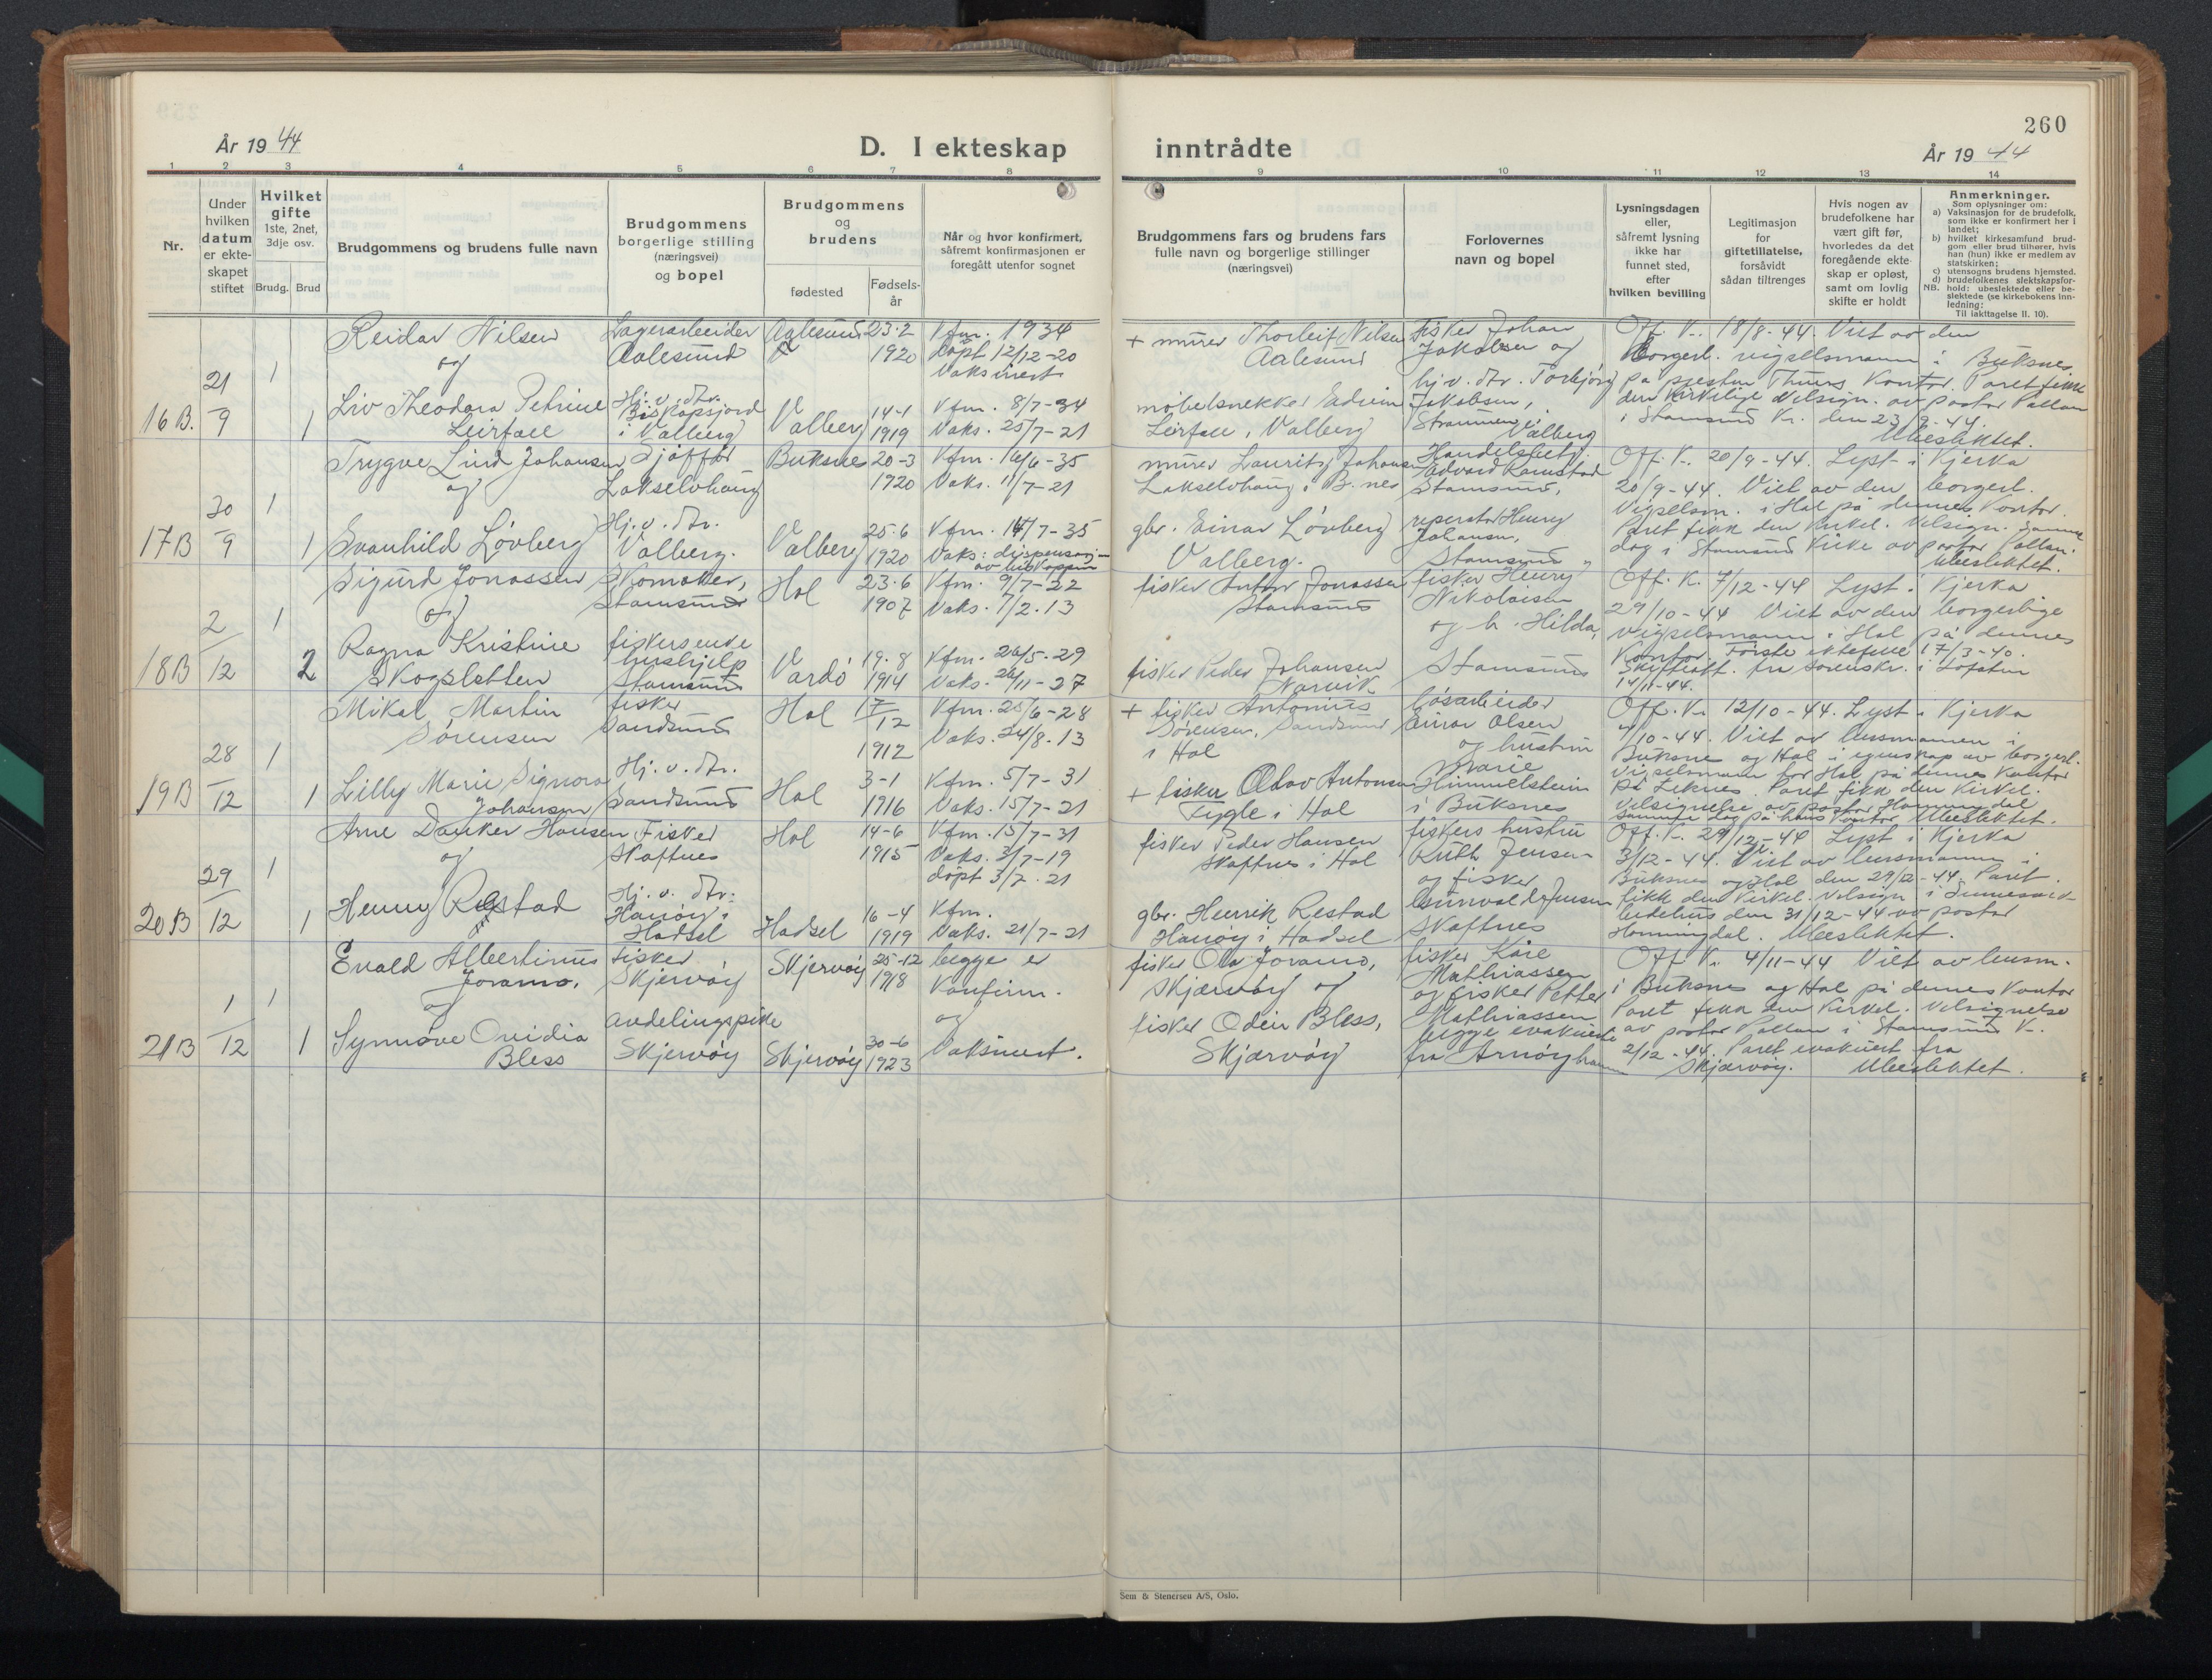 260
År 19 44
D. I ekteskap
inntrådte
År 19 44
1 2 3 4 5 6 7 8
9 10 11 12 13 14
Nr.
Under
hvilken
datum
er ekte-
skapet
stiftet
Hvilket
gifte
1ste, 2net,
3dje osv.
Brudg.
Brud
Brudgommens og brudens fulle navn
Brudgommens
borgerlige stilling
(næringsvei)
og bopel
Brudgommens
og
brudens
fødested
Fødsels-
år
Når og hvor konfirmert,
såfremt konfirmasjonen er
foregått utenfor sognet
Brudgommens fars og brudens fars
fulle navn og borgerlige stillinger
(næringsvei)
Forlovernes
navn og bopel
Lysningsdagen
eller,
såfremt lysning
ikke har
funnet sted,
efter
hvilken bevilling
Legitimasjon
for
giftetillatelse,
forsåvidt
sådan tiltrenges
Hvis nogen av
brudefolkene har
vært gift før,
hvorledes da det
foregående ekte-
skap er opløst,
samt om lovlig
skifte er holdt
Anmerkninger.
Som oplysninger om:
a) Vaksinasjon for de brudefolk,
som ikke er konfirmert her i
landet;
b) hvilket kirkesamfund brud-
gom eller brud tilhører, hvis
han (hun) ikke er medlem av
statskirken;
c) utensogns brudens hjemsted.
d) brudefolkenes slektskapsfor-
NB. hold: ubeslektede eller be-
slektede (se kirkebokens inn-
ledning:
Til iakttagelse II. 10).
16 B.
21
9
1
1
Reidar Nilsen
og
Liv Theodora Petrine
Leirfall
Lagerarbeider
Aalesund
Hj. v. dtr.
Biskopsjord
i Valberg
Aalesund
Valberg
23-2
1920
14-1
1919
Kfm. 1934
döpt 12/12-20
Vaksinert
Kfm. 8/7-34
Vaks. 25/7-21
+ murer Thorleif Nilsen
Aalesund
møbelsnekker Edvin
Leirfall, Valberg
fisker Johan
Jakobsen og
hj. v. dtr. Torbjörg
Jakobsen,
Valberg
Off. K. 18/8-44. Viet av den
borgerl. vigselsmann i Buksnes
på presten Kontor. Paret fikk
den kirkelige velsign. av pastor Pollan
i Stamsund K. den 23/9-44.
Ubeslektet.
17 B
30
9
1
1
Trygve Lind Johansen
og
Svanhild Løvberg
Sjåffør
Lakselvhaug
Hj. v. dtr.
Valberg.
Buksnes
Valberg
20-3
1920
25-6
1920
Kfm. 16/6-35
Vaks. 11/7-21
Kfm. 14/7-35
Vaks: dispensasj-
av biskoppen
murer Lauritz Johansen
Lakselvhaug i B.nes
gbr. Einar Løvberg
Valberg.
Handelsbetj.
Edvard Ramstad
Stamsund,
reperatør Henry
Johansen,
Stamsund
Off. K. 20/9-44. Lyst i Kjerka
20/9-44. Viet av den borgerl.
Vigselsm. i Hol på dennes Kontor.
Paret fikk den kirkel. velsign. samme
dag i Stamsund Kirke av pastor Pollan.
Ubeslektet.
18 B
2
12
1
2
Sigurd Jonassen
og
Ragna Kristine
Skogsletten
Skomaker,
Stamsund
fiskersenke
hushjelp
Stamsund
Hol
Vardö
23-6
1907
19-8
1914
Kfm. 9/7-22
Vaks. 1/2-13
Kfm. 26/5-29
Vaks. 26/11-27
fisker Anton Jonassen
Stamsund
fisker Peder Johansen
Narvik
fisker Henry
Nikolaisen
og h. Hilda,
Stamsund
Off. K. 7/12-44 Lyst i Kjerka
29/10-44 Viet av den borgerlige
vigselsmann i Hol på dennes
Kontor. Förste ektefelle 17/3-40.
Skifteatt. fra sorenskr. i Lofoten
14/11-44.
19 B
28
12
1
1
Mikal Martin
Sörensen
Lilly Marie Signora
Johansen
fisker
Sandsund
Hj. v. dtr.
Sandsund
Hol
Hol
17
12
1912
3-1
1916
Kfm. 25/6-28
Vaks. 24/8-13
Kfm. 5/7-31
Vaks. 15/7-21
+ fisker Antonius
Sörensen, Sandsund
i Hol
+ fisker Olav Antonsen
Tygle i Hol
lösarbeider
Einar Olsen
og hustru
Marie
Himmelstein
i Buksnes
Off. K. 12/10-44. Lyst i Kjerka
7/10-44. Viet av lensmannen i
Buksnes og Hol i egenskap av borgerl.
vigselsmann for Hol på dennes Kontor
på Leknes. Paret fikk den Kirkel.
velsignelse av pastor Honningdal
samme dag på hans kontor Ubeslektet.
20 B
29
12
1
1
Arne Danker Hansen
og
Henny Restad
Fisker
Skaftnes
Hj. v. dtr.
Hanöy i
Hadsel
Hol
Hadsel
14-6
1915
16-4
1919
Kfm. 15/7-31
Vaks. 3/7-19
döpt 3/7-21
Kfm.
Vaks. 21/7-21
fisker Peder Hansen
Skaftnes i Hol
gbr. Henrik Restad
Hanöy i Hadsel
fiskers hustru
Ruth Jensen
og fisker
Gunvald Jensen
Skaftnes
Off. K. 29/12-44 Lyst i Kjerka
3/12-44. Viet av lensmannen i
Buksnes og Hol den 29/12-44. Paret
fikk den Kirkel. velsign. i
bedehus den 31/12-44 av pastor
Honningdal. Ubeslektet.
21 B
1
12
1
1
Evald Albertinus
Joramo,
og
Synnöve Ovidia
Bless
Fisker
Skjervöy
avdelingspike
Skjervöy
Skjervöy
Skjervöy
25-12
1918
30-6
1923
begge er
Konfirm.
og
Vaksinert.
fisker Ola Joramo,
Skjærvöy og
fisker Odin Bless,
Skjærvöy
fisker Kåre
Mathiassen
og fisker Petter
Mathiassen
begge evakuerte
fra Arnöyhamn
Off. K. 4/11-44 Viet av lensm.
i Buksnes og Hol på dennes Kontor
Paret fikk den Kirkel. velsignelse
av pastor Pollan i Stamsund K.
2/12-44. Paret evakuert fra
Skjærvöy. Ubeslektet.
Sem & Stenersen A/S, Oslo.